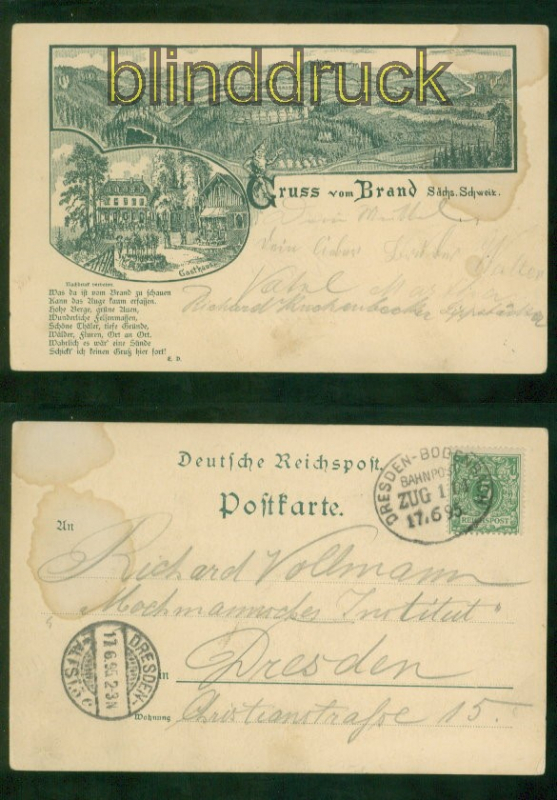 blinddruck
Gruss vom Brand Sächs. Schweiz.
Gasthaus
Nachdruck verboten
Was da ist vom Brand zu schauen
Kann das Auge kaum erfassen.
Hohe Berge, grüne Auen,
Wunderliche Felsenmassen,
Schöne Thäler, tiefe Gründe,
Wälder, Fluren, Ort an Ort.
Wahrlich es wär' eine Sünde
Schickt' ich keinen Gruß hier fort!
Dein lieber Bruder Walter
Richard
Deutsche Reichspost.
Postkarte.
DRESDEN-BODENBACH
BAHNPOST
ZUG
17.6.95
5
REICHSPOST
An
Richard Vollmann
Mochmannsches Institut
in Dresden
Wohnung Christianstraße 15.
DRESDEN-ALTST.
17.6.95.2-3N